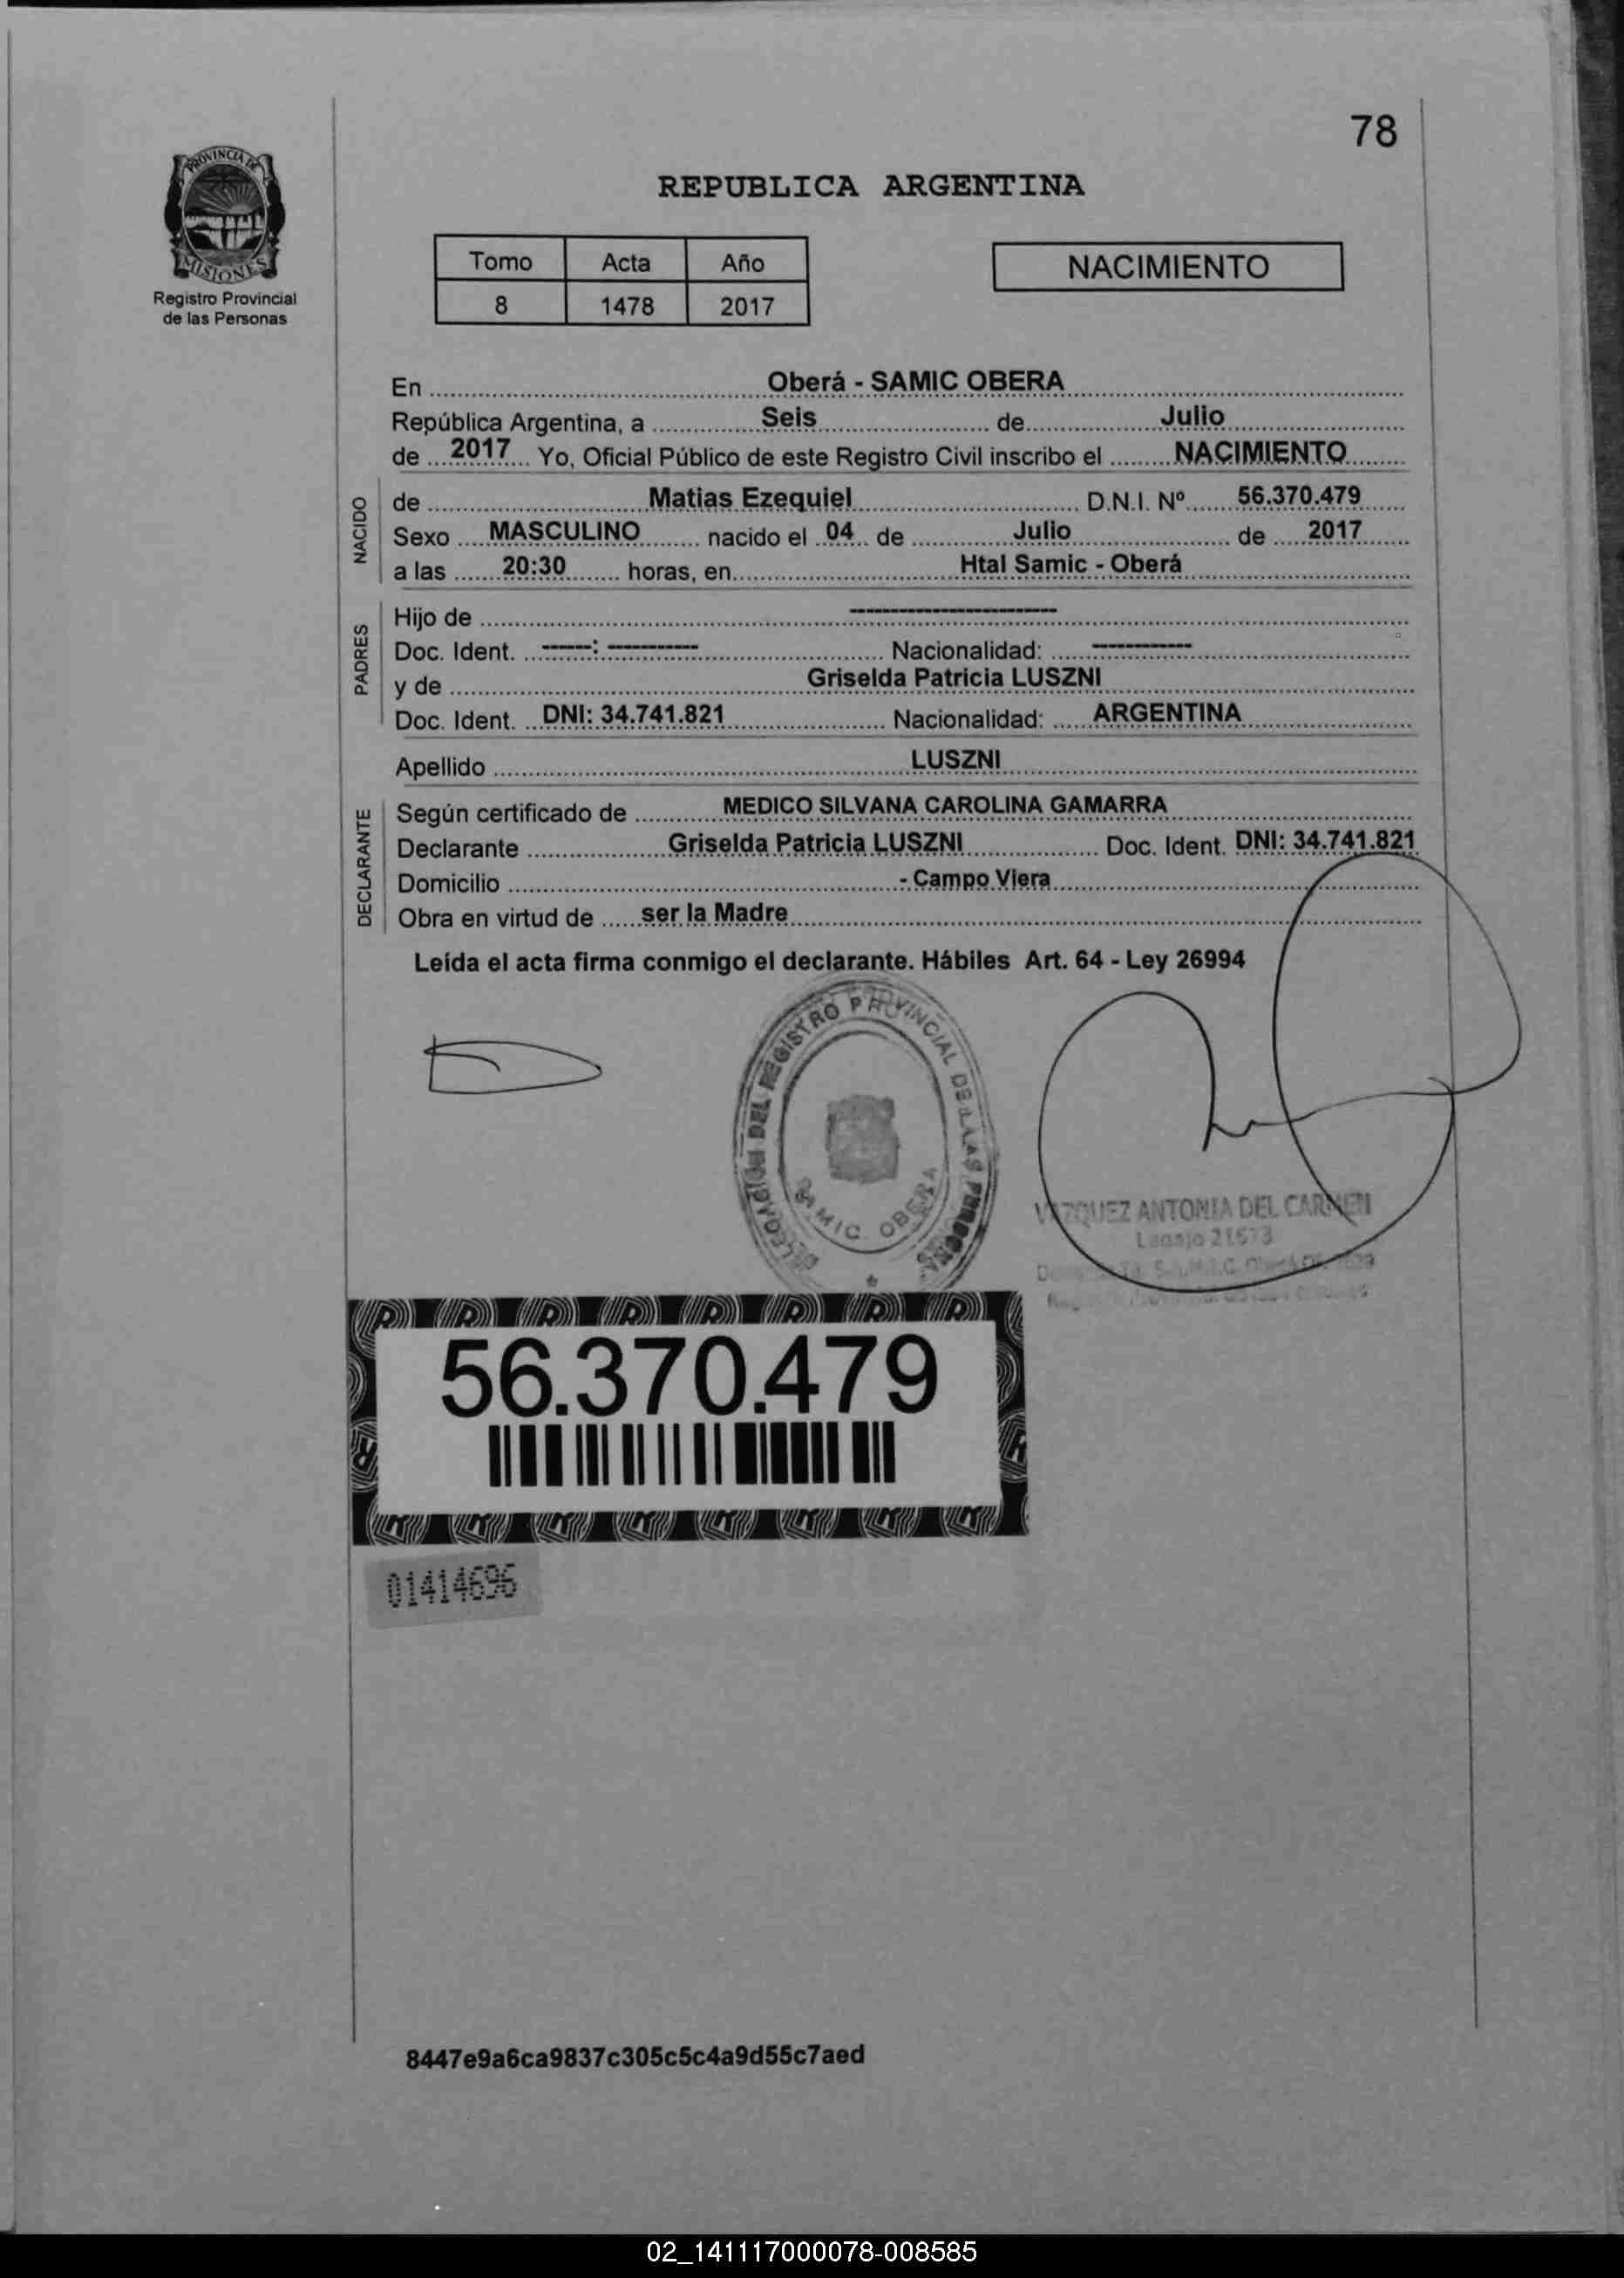 78
PROVINCIA DE
MISIONES
Registro Provincial
de las Personas
REPUBLICA ARGENTINA
Tomo Acta Año
8 1478 2017
NACIMIENTO
En Oberá - SAMIC OBERA
República Argentina, a Seis de Julio
de 2017 Yo, Oficial Público de este Registro Civil inscribo el NACIMIENTO
NACIDO
de Matias Ezequiel D.N.I. Nº 56.370.479
Sexo MASCULINO nacido el 04 de Julio de 2017
a las 20:30 horas, en Htal Samic - Oberá
PADRES
Hijo de --------------------
Doc. Ident. -----: --------- Nacionalidad: ----------
y de Griselda Patricia LUSZNI
Doc. Ident. DNI: 34.741.821 Nacionalidad: ARGENTINA
Apellido LUSZNI
DECLARANTE
Según certificado de MEDICO SILVANA CAROLINA GAMARRA
Declarante Griselda Patricia LUSZNI Doc. Ident. DNI: 34.741.821
Domicilio - Campo Viera
Obra en virtud de ser la Madre
Leída el acta firma conmigo el declarante. Hábiles Art. 64 - Ley 26994
DELEGACION DEL REGISTRO PROVINCIAL DE LAS PERSONAS
SAMIC OBERA
VAZQUEZ ANTONIA DEL CARMEN
Legajo 21673
56.370.479
01414696
8447e9a6ca9837c305c5c4a9d55c7aed
02_141117000078-008585